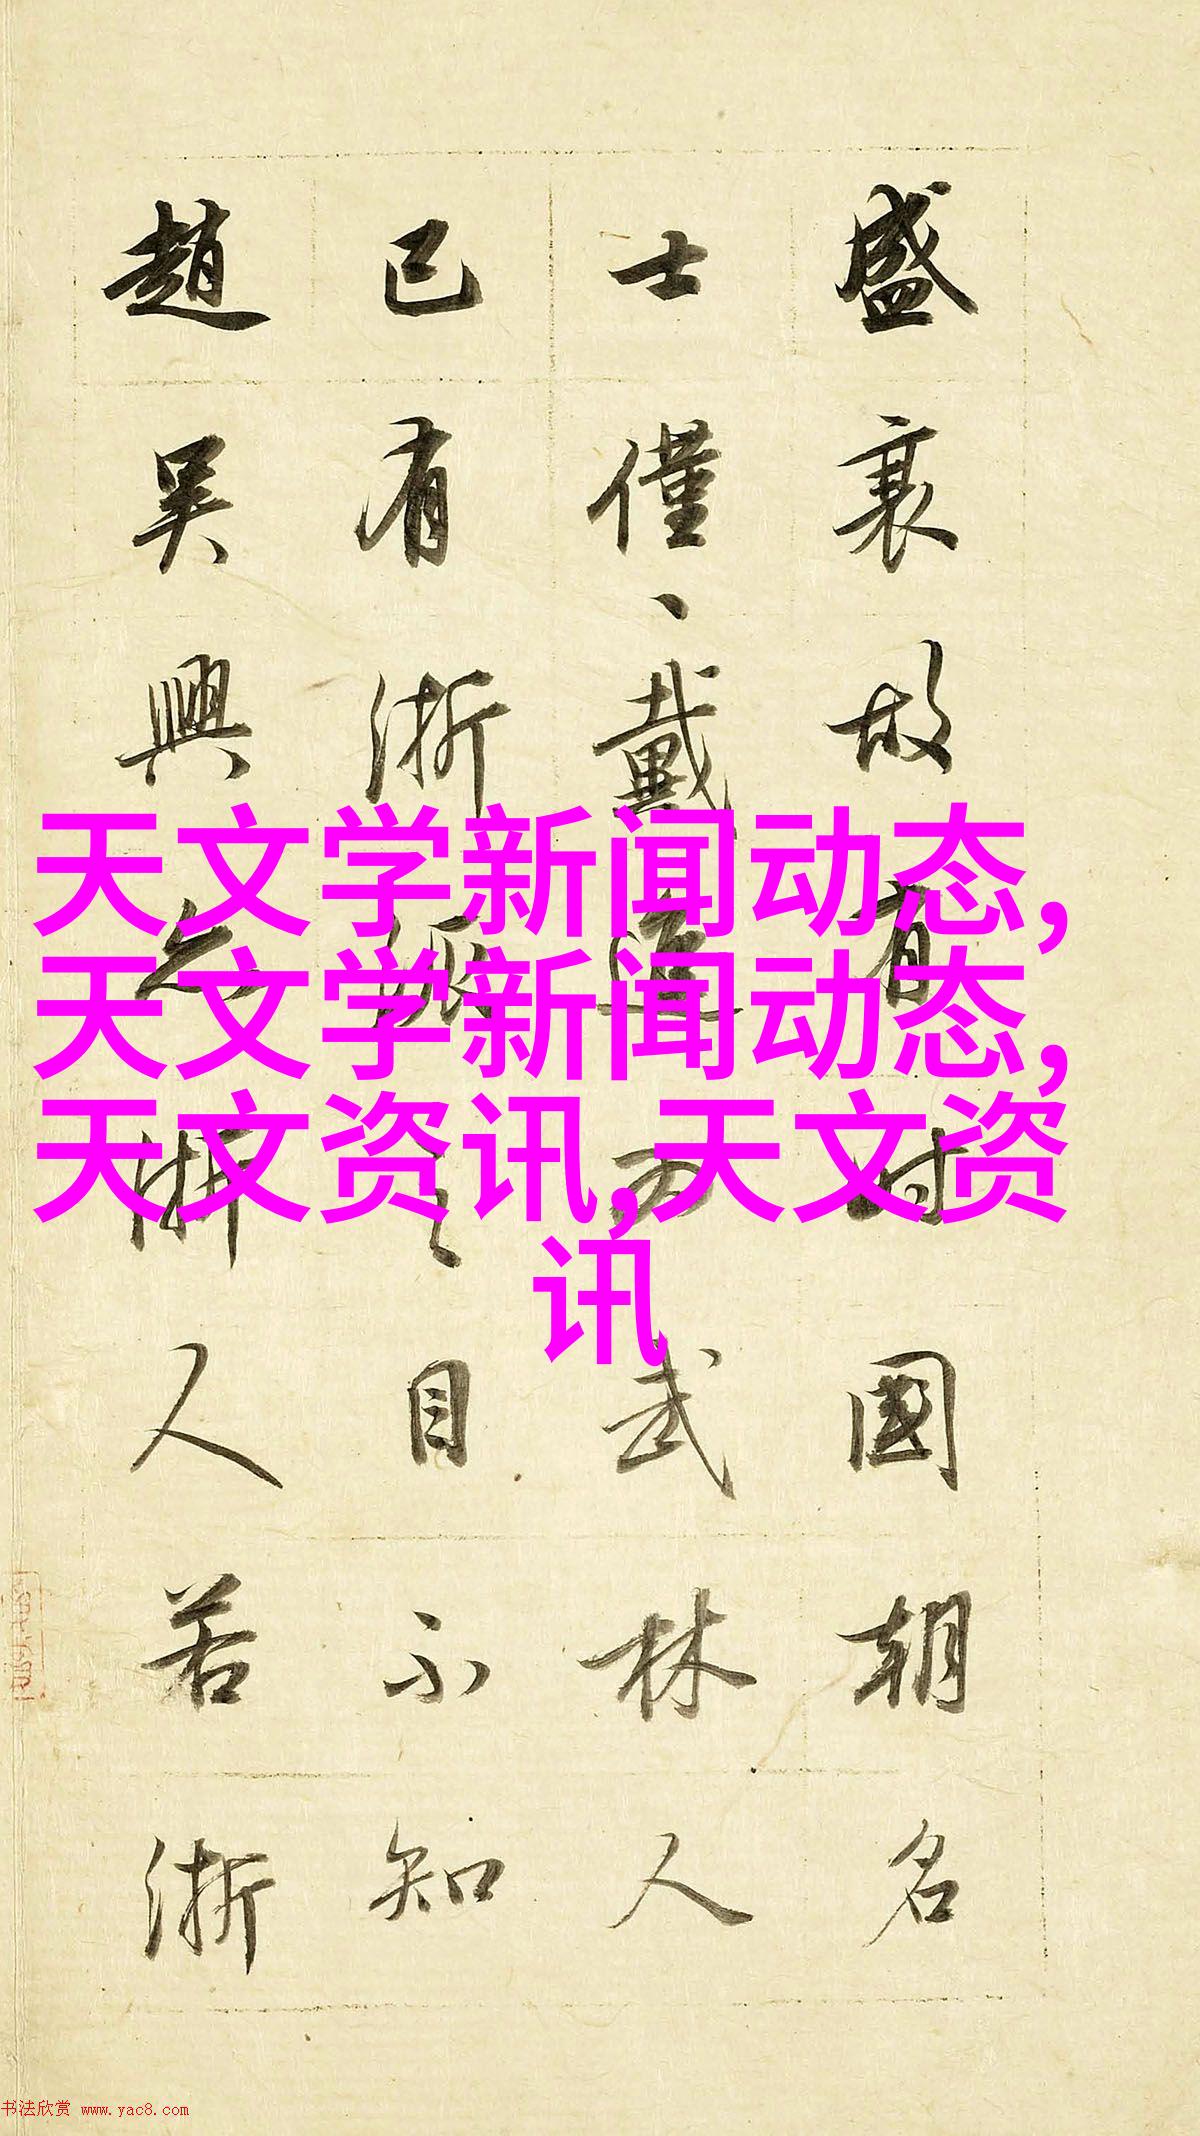 盛衰故有時國朝名
士僅、戴進為武林人
已有浙派之目不知
趙吳興亦浙人若浙
天文学新闻动态,
天文学新闻动态,
天文资讯,天文资
讯
书法欣赏 www.yac8.com